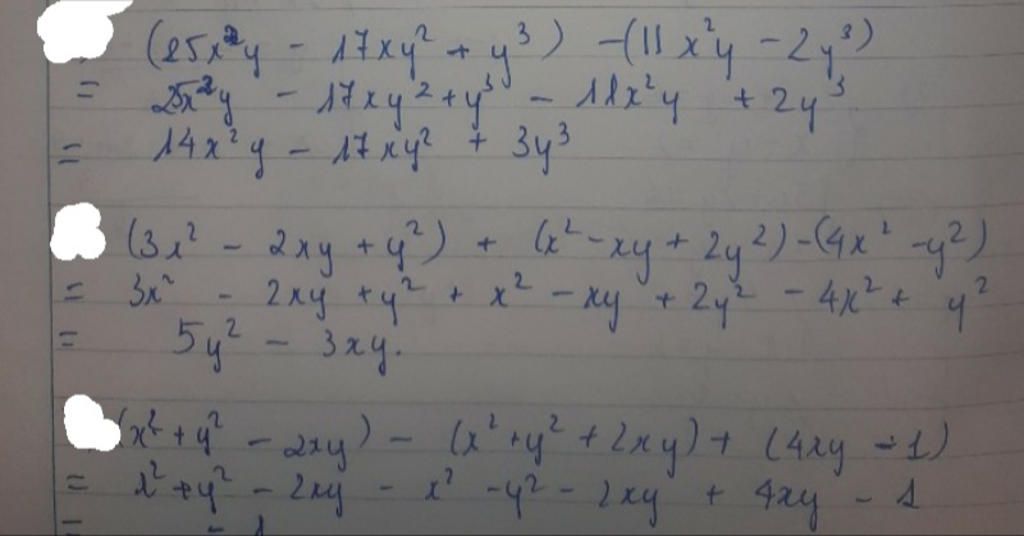 (25x²y - 17xy² + y³) - (11x²y - 2y³)
= 25x²y - 17xy² + y³ - 11x²y + 2y³
= 14x²y - 17xy² + 3y³
(3x² - 2xy + y²) + (x² - xy + 2y²) - (4x² - y²)
= 3x² - 2xy + y² + x² - xy + 2y² - 4x² + y²
= 5y² - 3xy.
(x² + y² - 2xy) - (x² + y² + 2xy) + (4xy - 1)
= x² + y² - 2xy - x² - y² - 2xy + 4xy - 1
= - 1